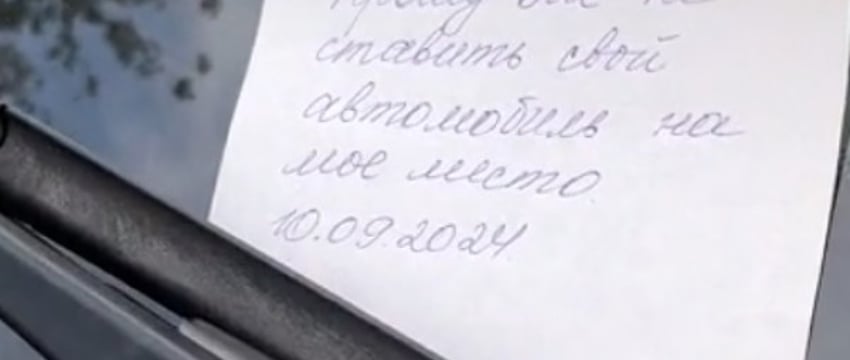 ставить свой
автомобиль на
мое место
10.09.2024